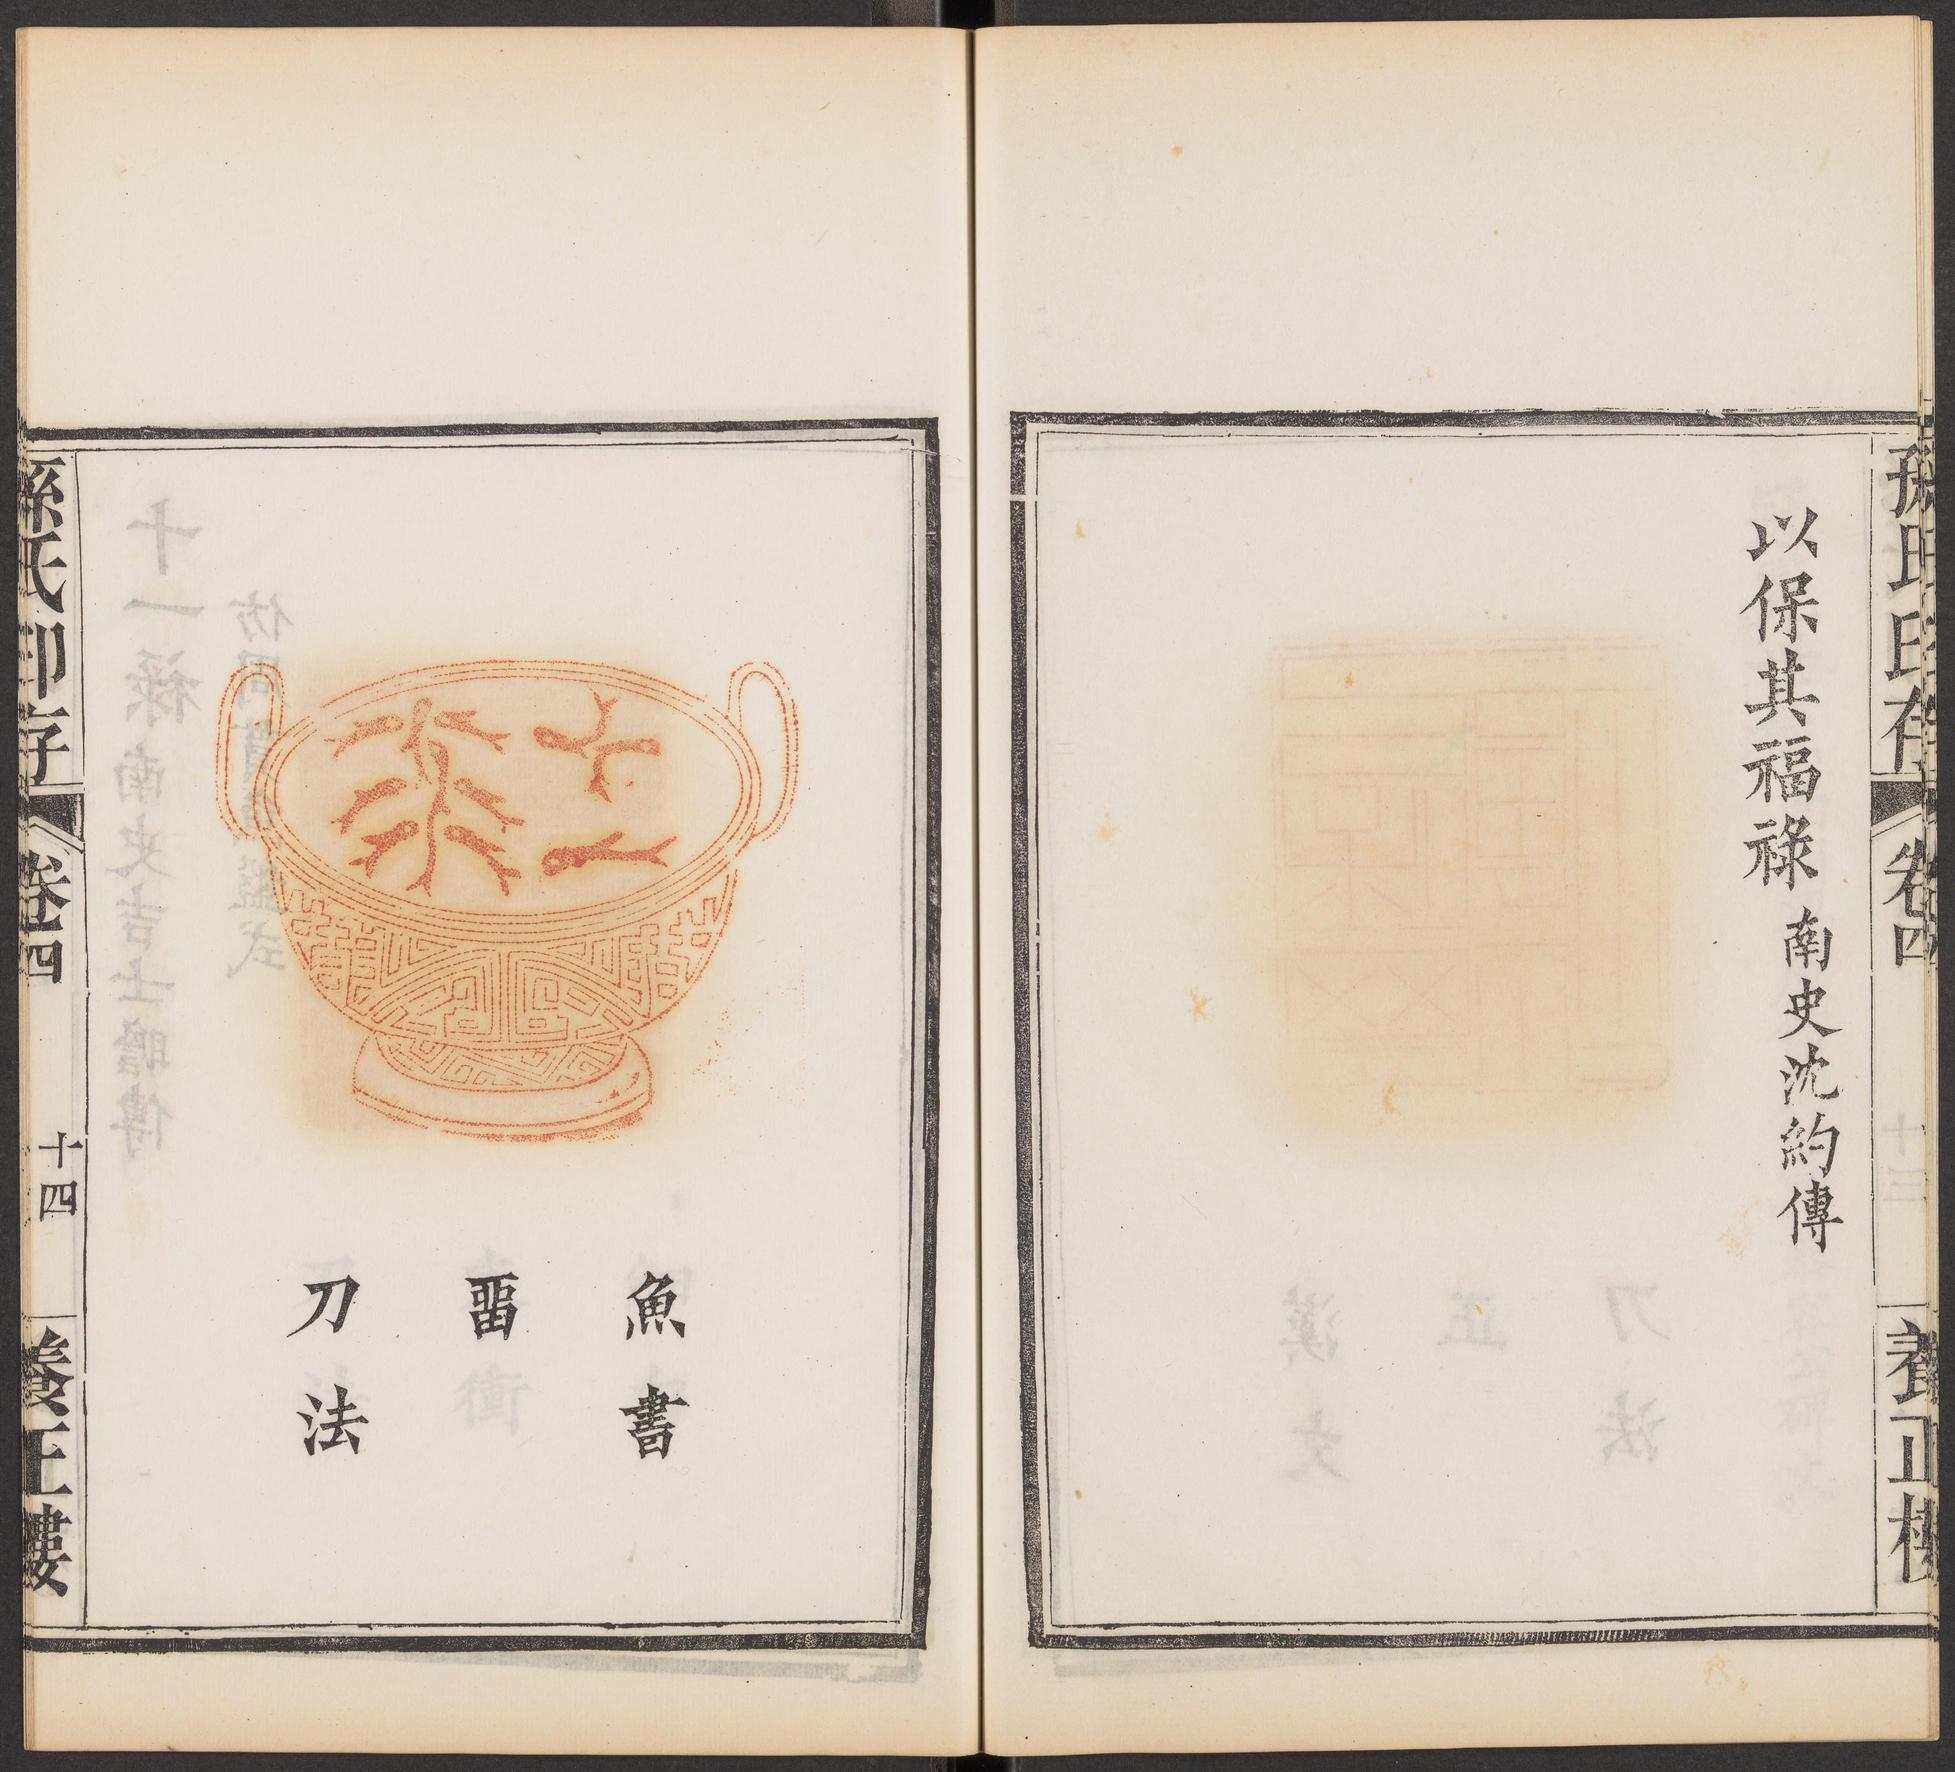 孫氏印存
卷四
養正樓
以保其福祿 南史沈約傳
魚書
畱
刀法
孫氏印存
卷四
十四
養正樓